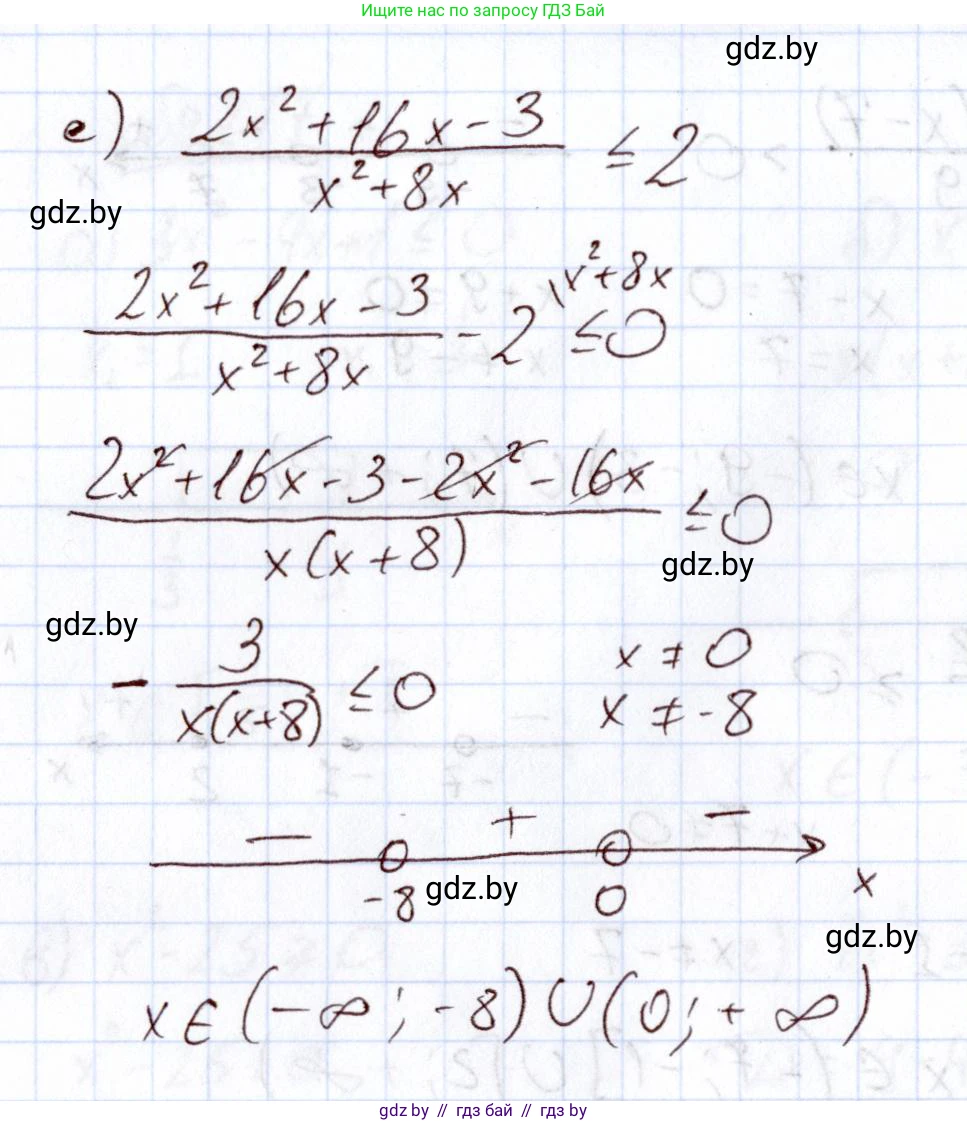 Ищите нас по запросу ГДЗ Бай
gdz.by
е) (2x² + 16x - 3)/(x² + 8x) ≤ 2
gdz.by
(2x² + 16x - 3)/(x² + 8x) - 2 \x² + 8x ≤ 0
(2x² + 16x - 3 - 2x² - 16x)/(x(x + 8)) ≤ 0
gdz.by
gdz.by
- 3/(x(x+8)) ≤ 0
x ≠ 0
x ≠ -8
− + −
-8 0 x
gdz.by
gdz.by
x ∈ (-∞; -8) ∪ (0; +∞)
gdz.by // гдз бай // гдз by